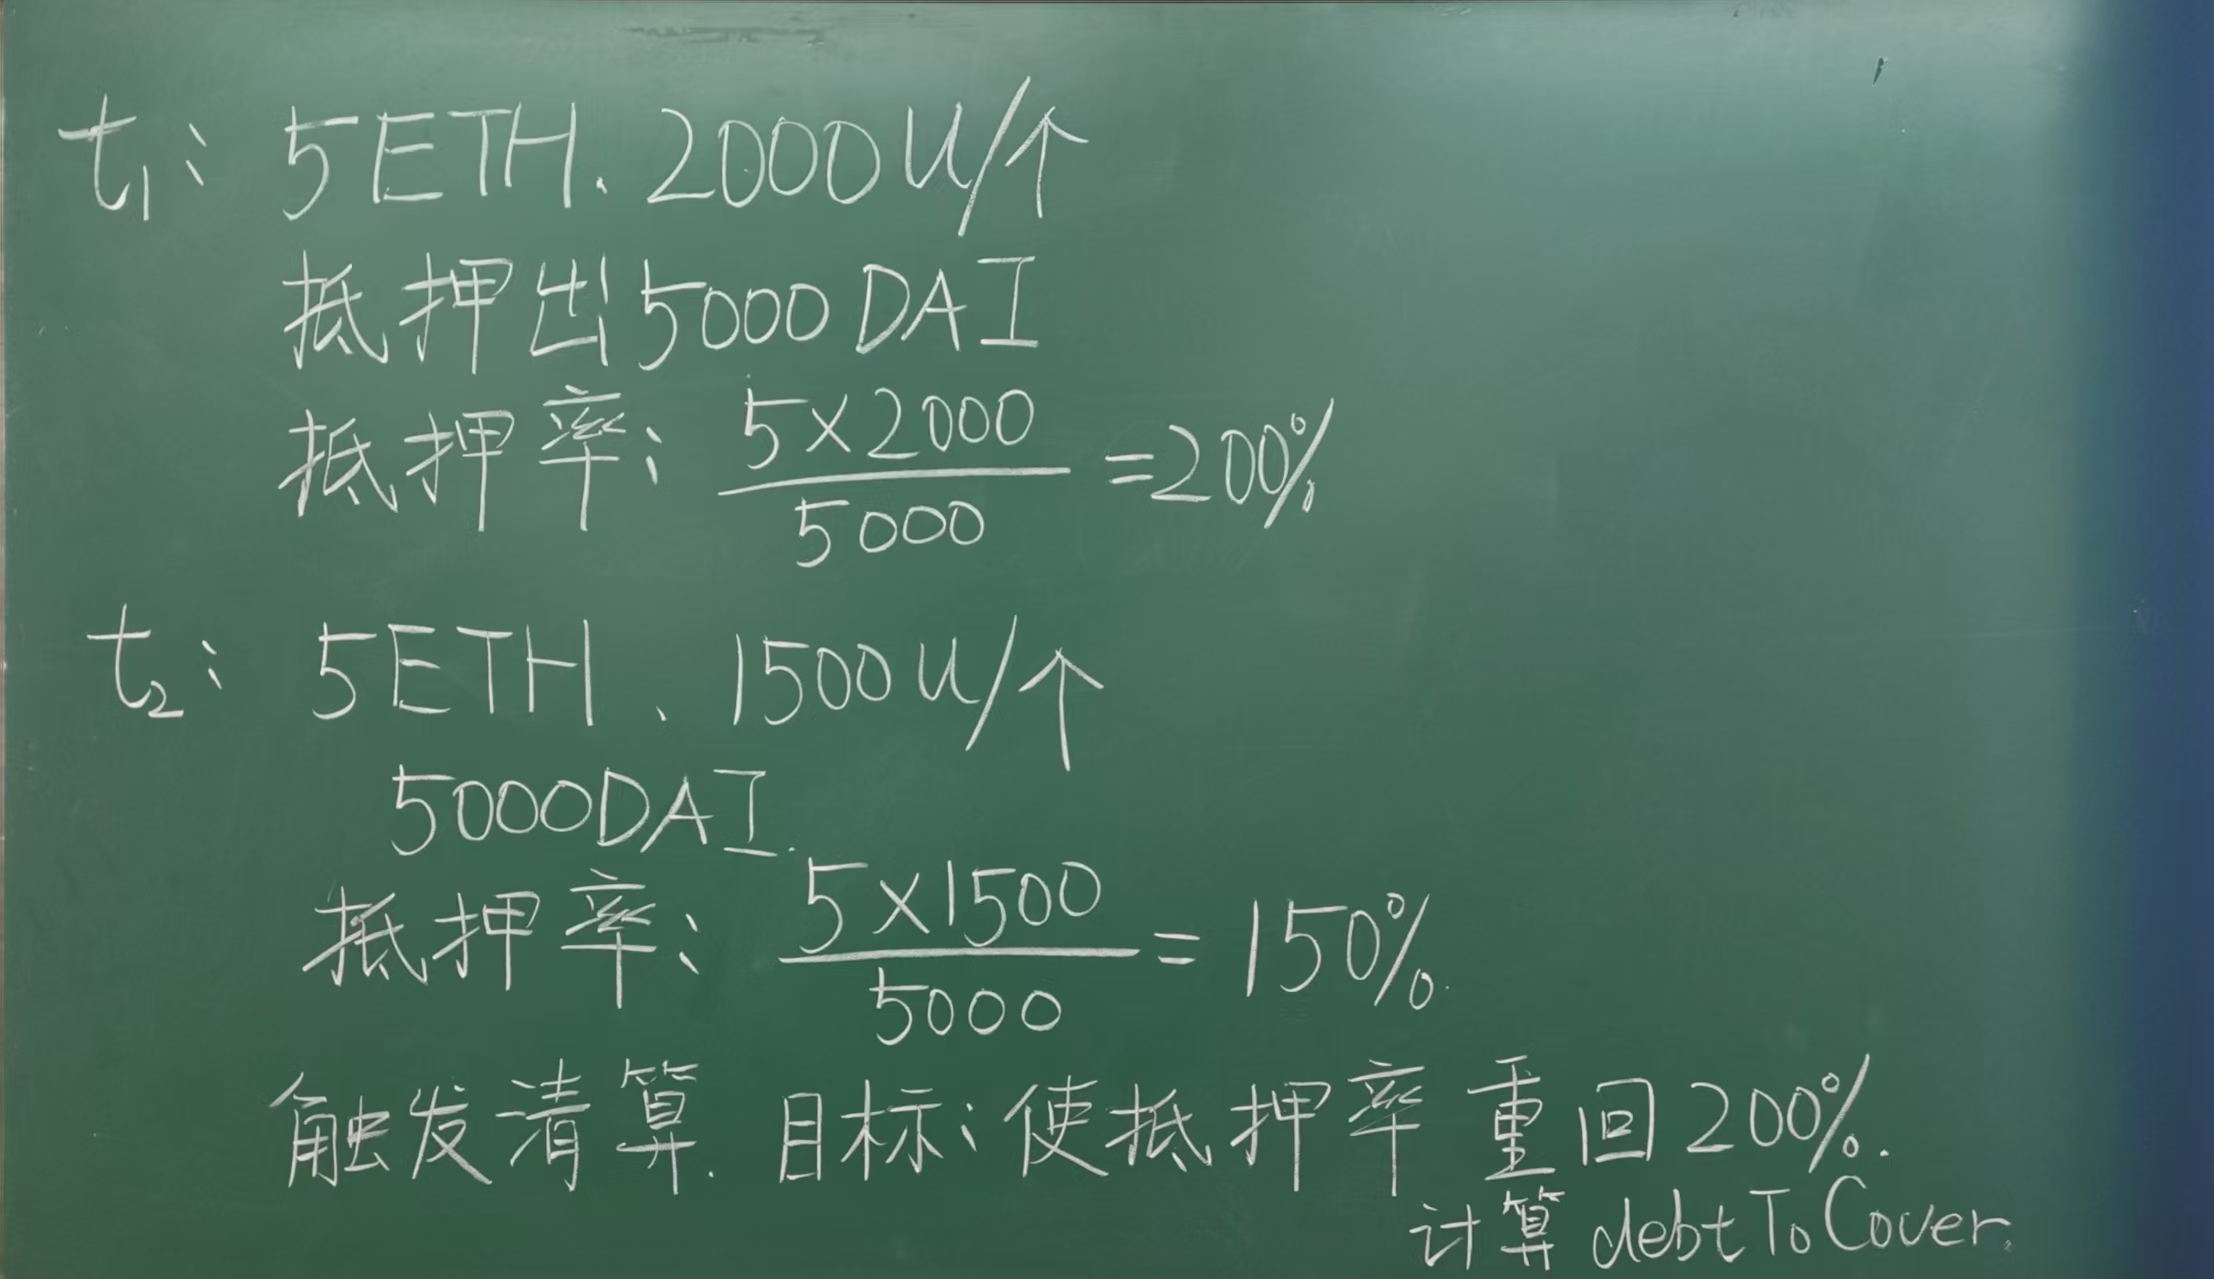 t₁: 5ETH、2000U/个
抵押出5000DAI
抵押率: 5×2000/5000 =200%
t₂: 5ETH、1500U/个
5000DAI.
抵押率: 5×1500/5000 = 150%.
触发清算. 目标: 使抵押率重回200%.
计算debtToCover.